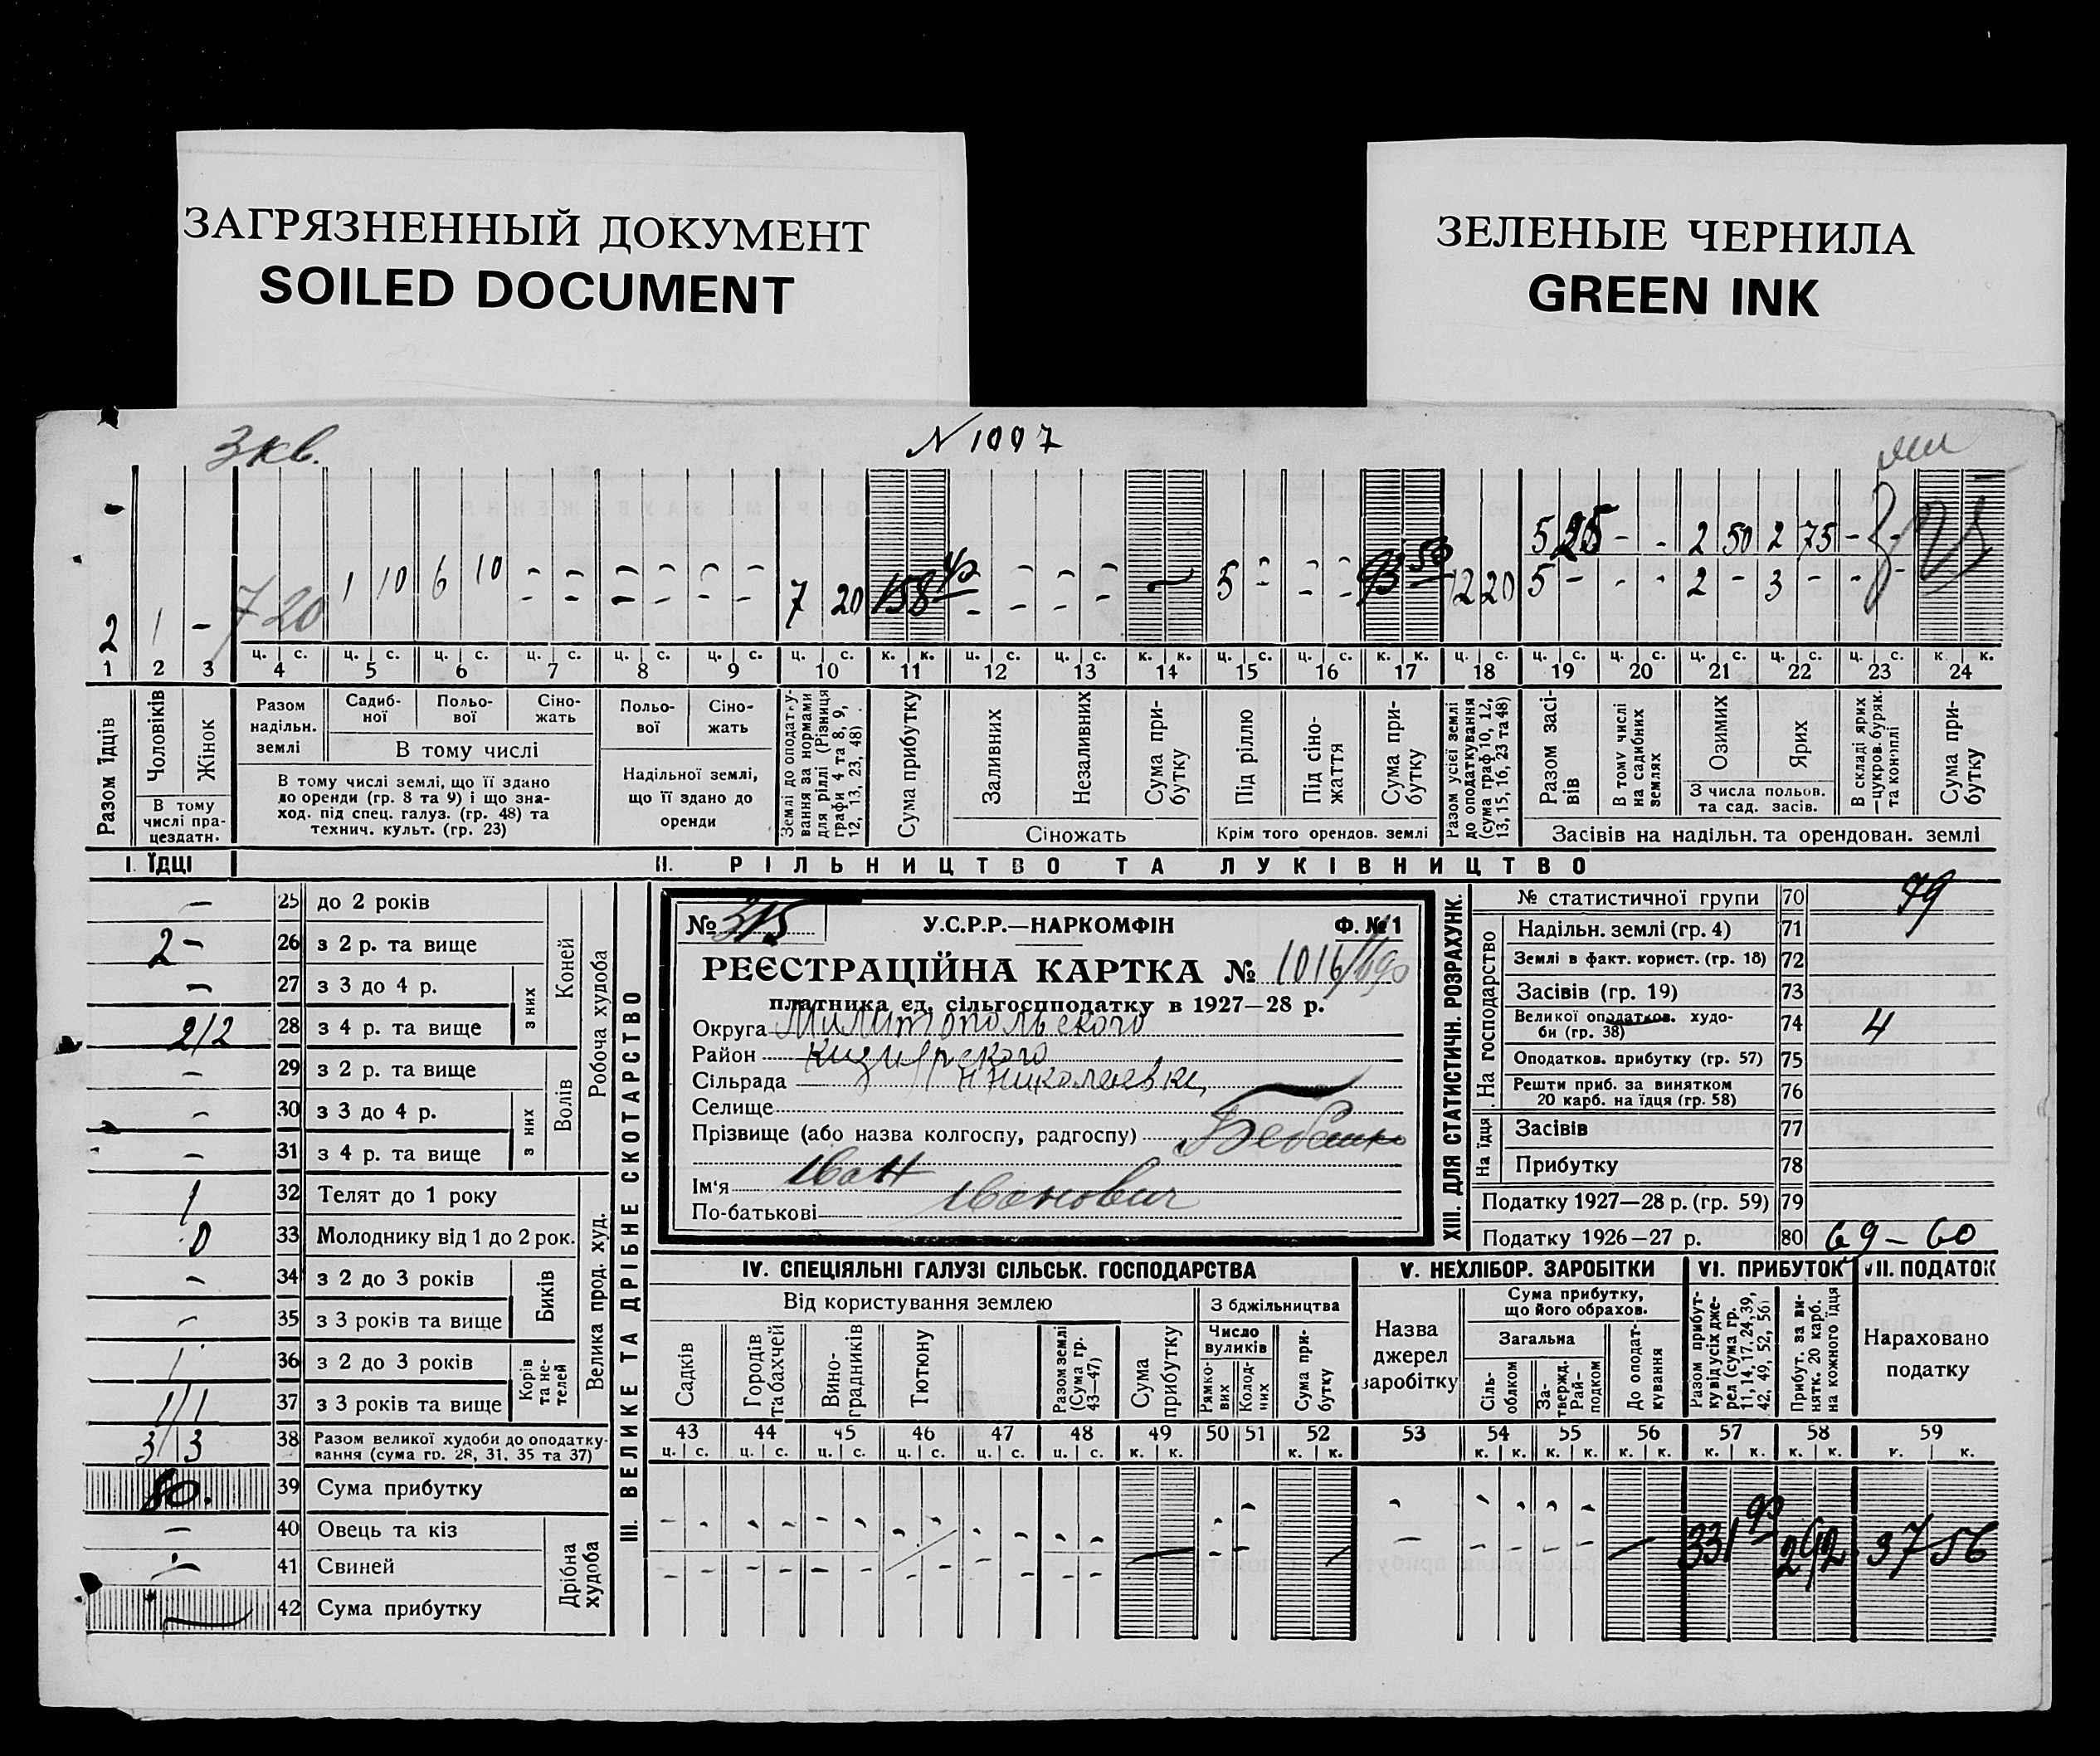 ЗАГРЯЗНЕННЫЙ ДОКУМЕНТ
SOILED DOCUMENT
ЗЕЛЕНЫЕ ЧЕРНИЛА
GREEN INK
3 кв.
N 1007
5 25 - - 2 50 2 75 - -
2 1 - 7 20 1 10 6 10 - - - - - - 7 20 158 40 - - - - - 5 - - - 93 50 12 20 5 - - - 2 - 3 - - -
ц. с. ц. с. ц. с. ц. с. ц. с. ц. с. ц. с. к. к. ц. с. ц. с. к. к. ц. с. ц. с. к. к. ц. с. ц. с. ц. с. ц. с. ц. с. ц. с. к. к.
1 2 3 4 5 6 7 8 9 10 11 12 13 14 15 16 17 18 19 20 21 22 23 24
Разом їдців
Чоловіків
Жінок
В тому числі працездатн.
Разом надільн. землі
Садибної
Польової
Сіножать
В тому числі
В тому числі землі, що її здано
до оренди (гр. 8 та 9) і що знаход.
під спец. галуз. (гр. 48) та
технич. культ. (гр. 23)
Польової
Сіножать
Надільної землі,
що її здано до
оренди
Землі до оподаткування за нормами для ріллі (Різниця графи 4 та 8, 9, 12, 13, 23, 48)
Сума прибутку
Заливних
Незаливних
Сума прибутку
Сіножать
Під ріллю
Під сіножаття
Сума прибутку
Крім того орендов. землі
Разом усієї землі до оподаткування (сума граф 10, 12, 13, 15, 16, 23 та 48)
Разом засівів
В тому числі на садибних землях
Озимих
Ярих
З числа польов. та сад. засів.
В складі ярих —цукров. буряк. та коноплі
Сума прибутку
Засівів на надільн. та орендован. землі
I. ЇДЦІ
II. РІЛЬНИЦТВО ТА ЛУКІВНИЦТВО
- 25 до 2 років
2 - 26 з 2 р. та вище
- 27 з 3 до 4 р.
2/2 28 з 4 р. та вище
з них
Коней
- 29 з 2 р. та вище
- 30 з 3 до 4 р.
- 31 з 4 р. та вище
з них
Волів
Робоча худоба
1 32 Телят до 1 року
0 33 Молоднику від 1 до 2 рок.
- 34 з 2 до 3 років
- 35 з 3 років та вище
Биків
36 з 2 до 3 років
1/1 37 з 3 років та вище
Корів та нетелей
Велика прод. худ.
3/3 38 Разом великої худоби до оподаткування (сума гр. 28, 31, 35 та 37)
80. 39 Сума прибутку
- 40 Овець та кіз
- 41 Свиней
42 Сума прибутку
Дрібна худоба
III. ВЕЛИКЕ ТА ДРІБНЕ СКОТАРСТВО
№ 315
У.С.Р.Р.—НАРКОМФІН
Ф. № 1
РЕЄСТРАЦІЙНА КАРТКА № 1016/690
платника єд. сільгоспподатку в 1927—28 р.
Округа Милитопольского
Район
Сільрада Николаевка
Селище
Прізвище (або назва колгоспу, радгоспу)
Ім'я Иван
По-батькові Иванович
XIII. ДЛЯ СТАТИСТИЧН. РОЗРАХУНК.
На господарство
№ статистичної групи 70 79
Надільн. землі (гр. 4) 71
Землі в факт. корист. (гр. 18) 72
Засівів (гр. 19) 73
Великої оподатков. худоби (гр. 38) 74 4
Оподатков. прибутку (гр. 57) 75
Решти приб. за винятком
20 карб. на їдця (гр. 58) 76
На їдця
Засівів 77
Прибутку 78
Податку 1927—28 р. (гр. 59) 79
Податку 1926—27 р. 80 69-60
IV. СПЕЦІЯЛЬНІ ГАЛУЗІ СІЛЬСЬК. ГОСПОДАРСТВА
Від користування землею
З бджільництва
Садків
Городів та бахчей
Виноградників
Тютюну
Разом землі (Сума гр. 43—47)
Сума прибутку
Число вуликів
Рямкових
Колодних
Сума прибутку
V. НЕХЛІБОР. ЗАРОБІТКИ
Назва джерел заробітку
Сума прибутку, що його обрахов.
Загальна
Сільрадком
Затвердж. Райподком
До оподаткування
VI. ПРИБУТОК
Разом прибутку від усіх джерел (сума гр. 11, 14, 17, 24, 39, 42, 49, 52, 56)
Прибут. за винятк. 20 карб. на кожного їдця
VII. ПОДАТОК
Нараховано податку
43 44 45 46 47 48 49 50 51 52 53 54 55 56 57 58 59
ц. с. ц. с. ц. с. ц. с. ц. с. ц. с. к. к. к. к. к. к. к. к. к. к. к. к. к. к. к. к.
331 90 37 56